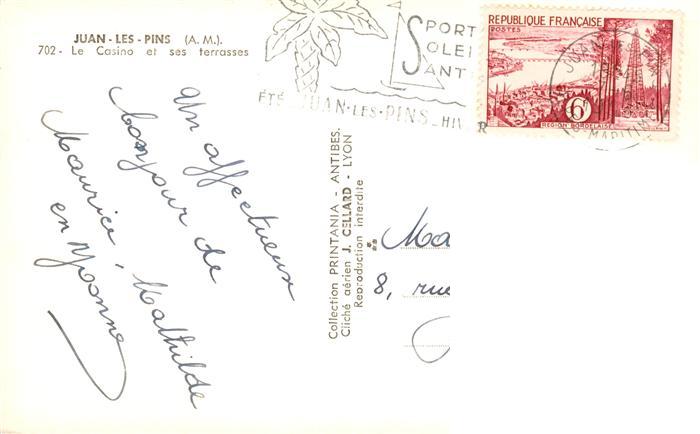 JUAN-LES-PINS (A. M.).
702 - Le Casino et ses terrasses
Un affectueux
bonjour de
Maurice, Mathilde
en Yvonne
Collection PRINTANIA - ANTIBES.
Cliché aérien J. CELLARD - LYON
Reproduction interdite
SPORT
SOLEI
SANT
ÉTÉ JUAN-LES-PINS_HIV
REPUBLIQUE FRANÇAISE
POSTES
6F
REGION BORDELAISE
JUAN
MARITIM
8, rue